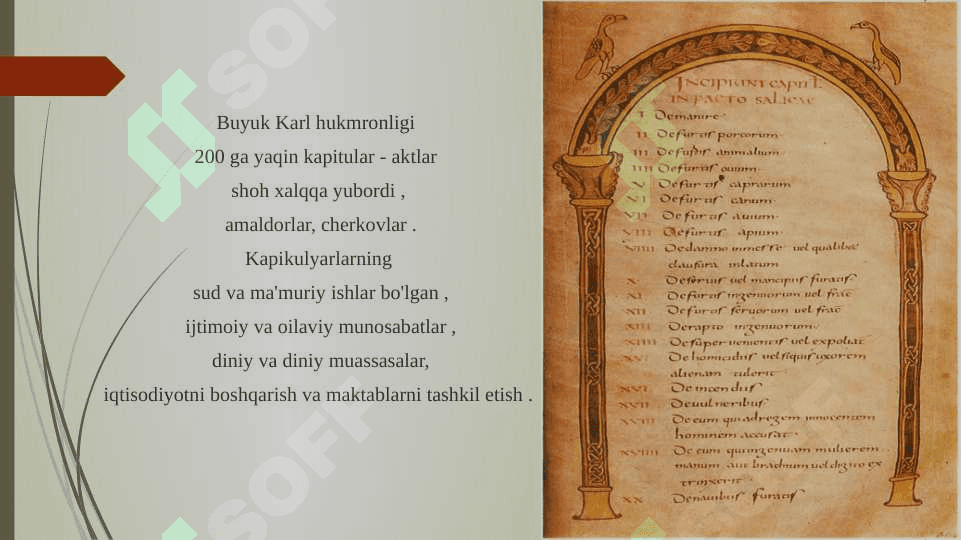 SOFF
Buyuk Karl hukmronligi
200 ga yaqin kapitular - aktlar
shoh xalqqa yubordi ,
amaldorlar, cherkovlar .
Kapikulyarlarning
sud va ma'muriy ishlar bo'lgan ,
ijtimoiy va oilaviy munosabatlar ,
diniy va diniy muassasalar,
iqtisodiyotni boshqarish va maktablarni tashkil etish .
SOFF
INCIPIUNT CAPITL
IN PACTO SALICAE
I De manire
II De furtis porcorum
III De furtis animalium
IIII De furtis ouium
V De furtis caprarum
VI De furtis canum
VII De furtis auium
VIII De furtis apium
VIIII De damno in messe uel qualibet
clausura inlatum
X De seruis uel mancipiis furatis
XI De furtis ingenuorum uel frac
XII De furtis seruorum uel frac
XIII De rapto ingenuorum
XIIII De superuenientis uel expoliat
XV De homicidiis uel si quis uxorem
alienam tulerit
XVI De incendiis
XVII De uulneribus
XVIII De eum qui ad regem innocentem
hominem accusat
XVIIII De eum qui ingenuam mulierem
manum aut brachium uel digito ex
trinxerit
XX De nauibus furatis